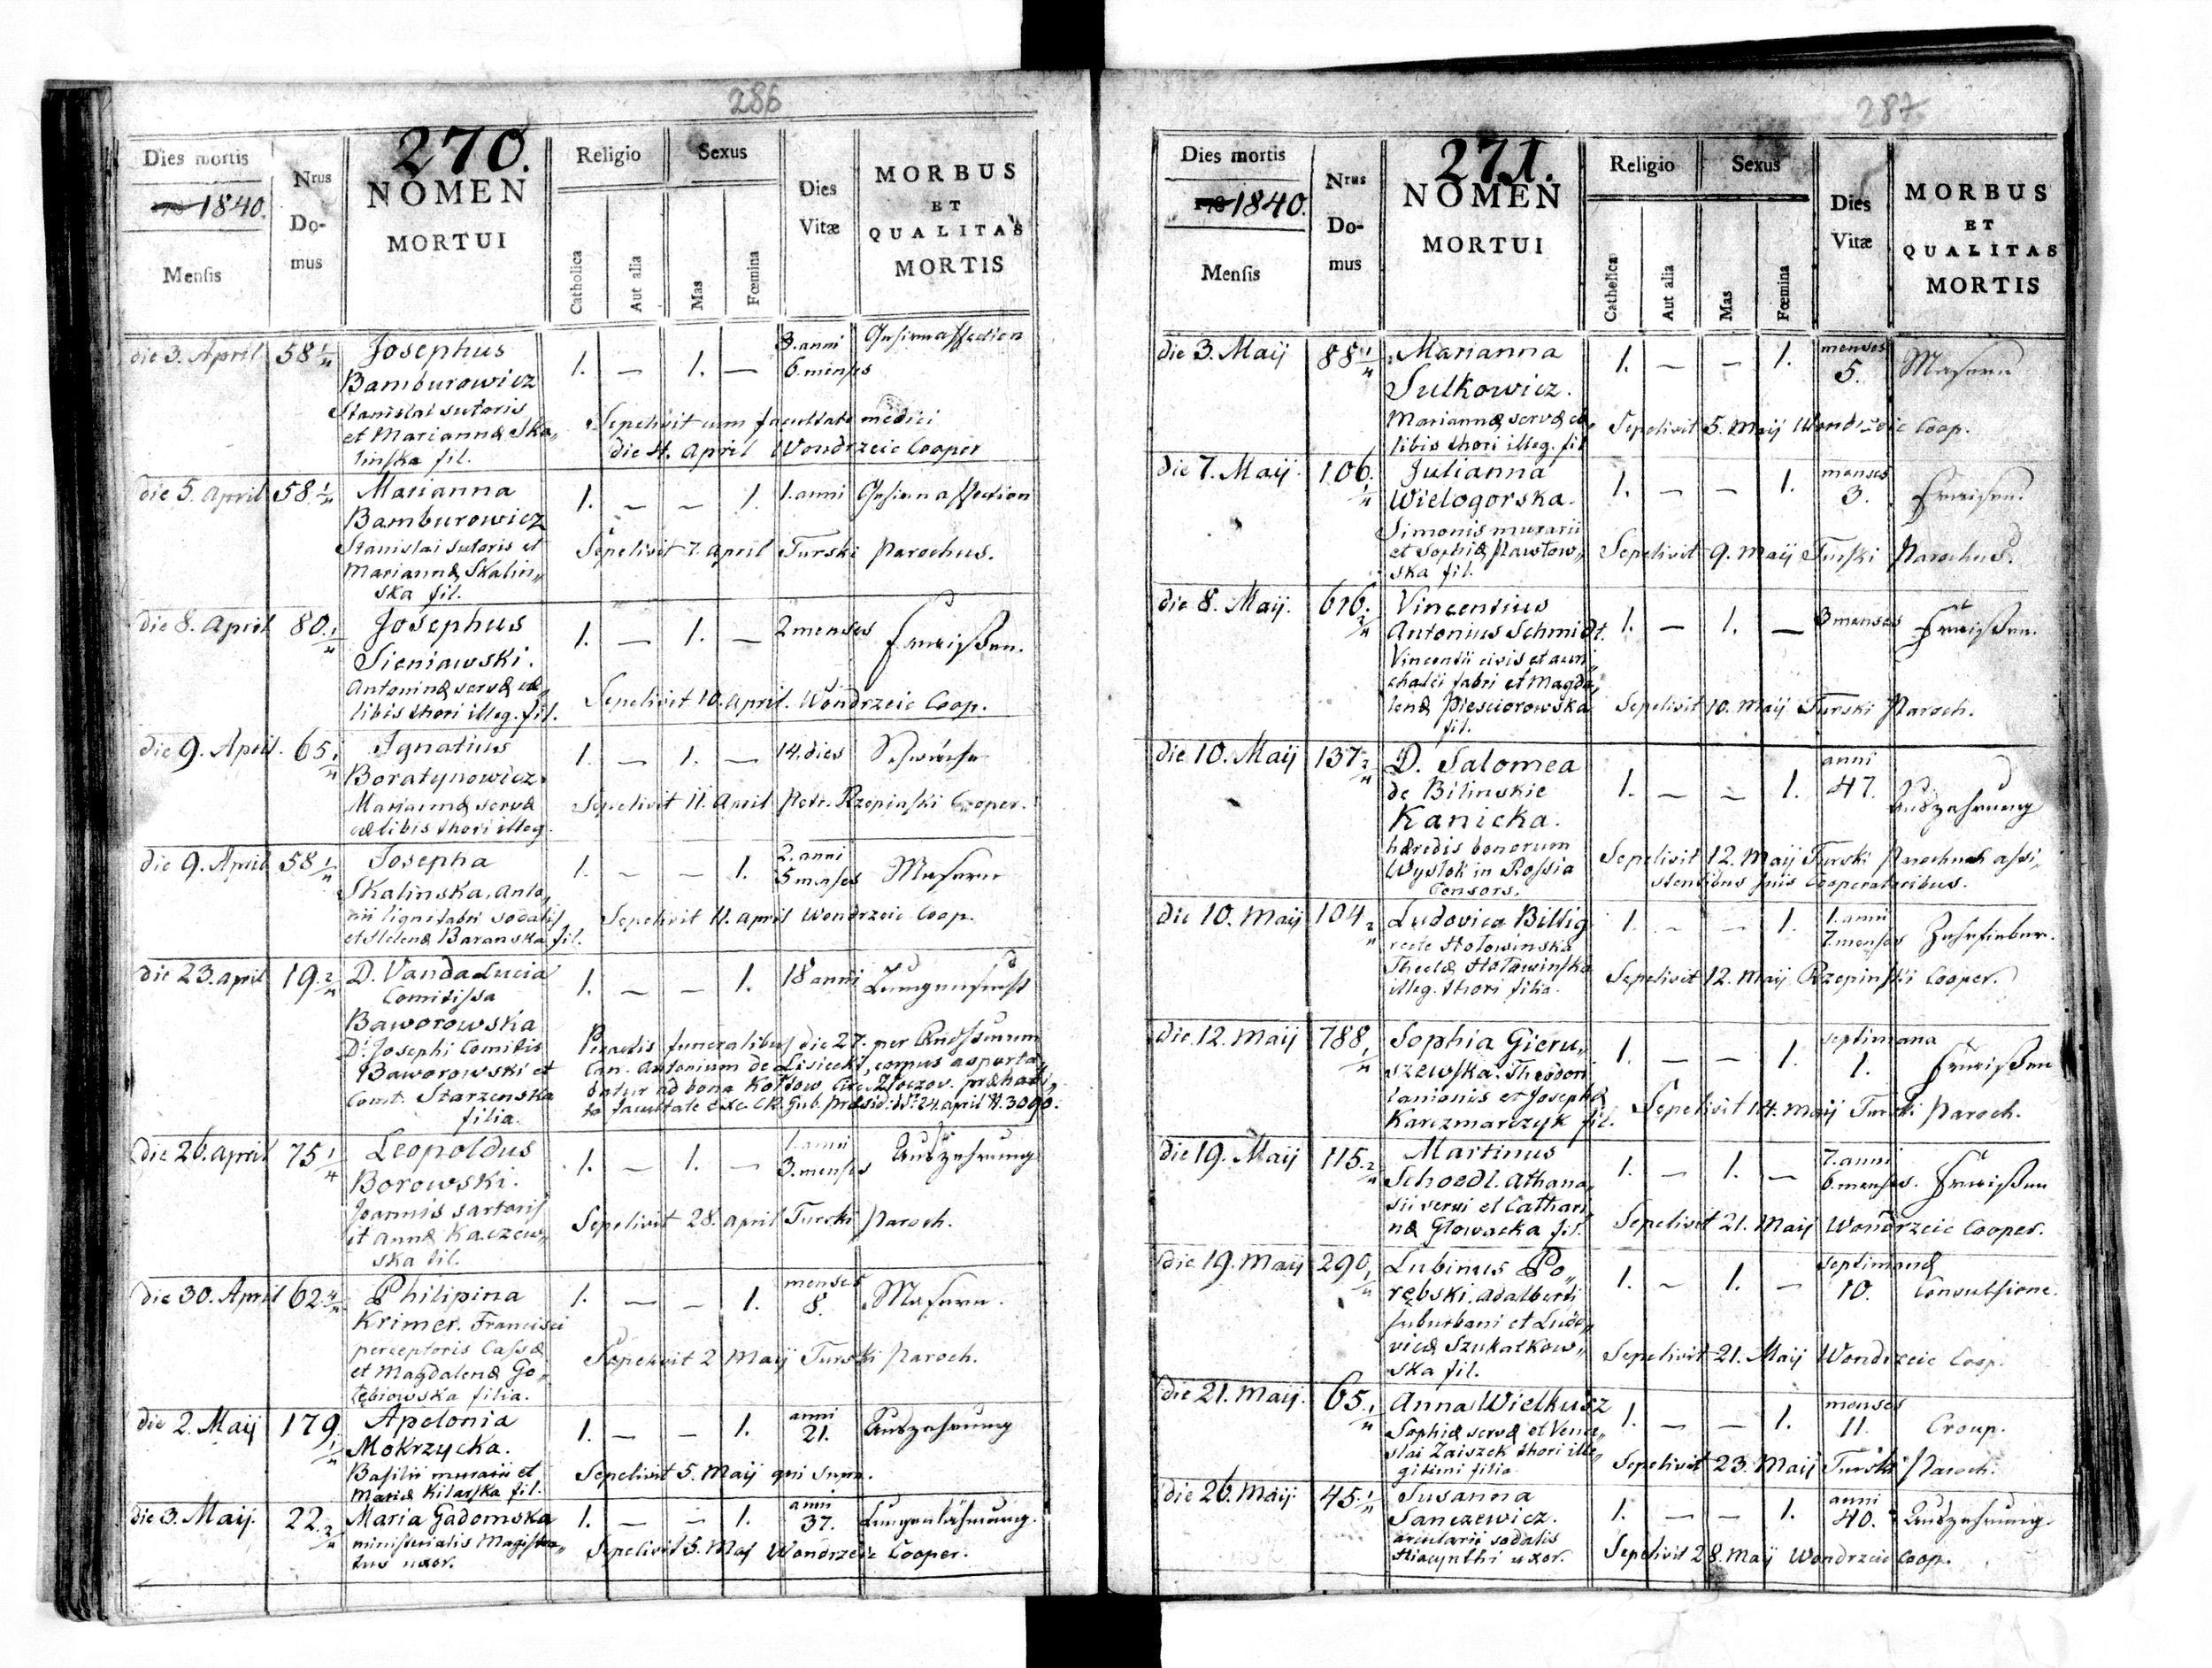 286
270.
Dies mortis
1840.
Mensis
Nrus
Do-
mus
NOMEN
MORTUI
Religio
Catholica
Aut alia
Sexus
Mas
Fœmina
Dies
Vitæ
MORBUS
ET
QUALITAS
MORTIS
die 3. April 58 1/4 Josephus 1. — 1. — 3. anni
Bamburowicz 6. menses
Stanislai sutoris
et Mariannæ Ska„
linska fil.
Sepelivit cum facultate medici
die 4. April Wondrzeic Cooper
die 5. April 58 1/4 Marianna 1. — — 1. 1. anni
Bamburowicz
Stanislai sutoris et
Mariannæ Skalin„
ska fil.
Sepelivit 7. April Turski Parochus.
die 8. April 80. 1/4 Josephus 1. — 1. — 2 menses Fraißen.
Sieniawski.
Antoninæ servæ cæ„
libis thori illeg. fil.
Sepelivit 10. April. Wondrzeic Coop.
die 9. April. 65 1/4 Ignatius 1. — 1. — 14. dies Schwäche
Boratynowicz.
Mariannæ servæ
cælibis thori illeg.
Sepelivit 11. April Petr. Rzepinski Cooper.
die 9. April 58 1/4 Josepha 1. — — 1. 2. anni
5 menses Masern
Skalinska, Anto„
nii lignifabri sodalis
et Helenæ Baranska fil.
Sepelivit 11. April Wondrzeic Coop.
die 23. April 19. 2/4 D. Vanda Lucia 1. — — 1. 18 anni Lungensucht
Comitissa
Baworowska
D. Josephi Comitis
Baworowski et
Comt. Starzenska
filia.
Peractis funeralibus die 27. per
Can. Antonium de Lisiecki, corpus asporta„
batur ad bona Koltow Circ. Złoczov. præhabi„
ta facultate Exc. CR. Gub. Præsid. 24. April N. 3090.
die 26. April 75 1/4 Leopoldus 1. — 1. — 1. anni
3. menses Auszehrung
Borowski.
Joannis sartoris
et Annæ Kaczew„
ska fil.
Sepelivit 28. April Turski Paroch.
die 30. April 62. 4/4 Philipina 1. — — 1. menses
8. Masern.
Krimer. Francisci
perceptoris Cassæ
et Magdalenæ Go„
łębiowska filia.
Sepelivit 2 Maij Turski Paroch.
die 2. Maij 179. 1/4 Apolonia 1. — — 1. anni
21. Auszehrung
Mokrzycka.
Basilii murarii et
Mariæ Kilarska fil.
Sepelivit 5. Maij qui supra.
die 3. Maij. 22. 2/4 Maria Gadomska 1. — — 1. anni
37. Lungenlähmung.
ministerialis Magistra„
tus uxor.
Sepelivit 5. Maj Wondrzeic Cooper.
287.
271.
Dies mortis
1840.
Mensis
Nrus
Do-
mus
NOMEN
MORTUI
Religio
Catholica
Aut alia
Sexus
Mas
Fœmina
Dies
Vitæ
MORBUS
ET
QUALITAS
MORTIS
die 3. Maij 88 1/4 Marianna 1. — — 1. menses
5. Masern
Sulkowicz.
Mariannæ servæ cæ„
libis thori illeg. fil
Sepelivit 5. Maij Wondrzeic Coop.
die 7. Maij. 106. 1/4 Julianna 1. — — 1. menses
3. Fraisen.
Wielogorska.
Simonis murarii
et Sophiæ Pawłow„
ska fil.
Sepelivit 9. Maij Turski Parochus.
die 8. Maij. 616. 2/4 Vincentius 1. — 1. — 3 menses Fraißen.
Antonius Schmidt.
Vincentii civis et auri„
chalci fabri et Magda„
lenæ Piesciorowska
fil.
Sepelivit 10. Maij Turski Paroch.
die 10. Maij 137 2/4 D. Salomea 1. — — 1. anni
47. Auszehrung
de Bilinskie
Kanicka.
hæredis bonorum
Wystok in Rossia
Consors.
Sepelivit 12. Maij Turski Parochus assi„
stentibus suis Cooperatoribus.
die 10. Maij 104 2/4 Ludovica Billig 1. — — 1. 1. anni
7. menses Zehrfieber.
recte Hołowinska
Theclæ Hołowinska
illeg. thori filia.
Sepelivit 12. Maij Rzepinski Cooper.
die 12. Maij 788 1/4 Sophia Gieru„ 1. — — 1. septimana
1. Fraißen
szewska. Theodori
lanionis et Josephæ
Karczmarczyk fil.
Sepelivit 14. Maij Turski Paroch.
die 19. Maij 115. 2/4 Martinus 1. — 1. — 7. anni
6. menses. Fraißen
Schoedl. Athana„
sii servi et Cathari„
næ Głowacka fil.
Sepelivit 21. Maij Wondrzeic Cooper.
die 19. Maij 290 1/4 Lubinus Po„ 1. — 1. — septimanæ
10. Convulsione.
rębski. Adalberti
suburbani et Ludo„
vicæ Szukałkow„
ska fil.
Sepelivit 21. Maij Wondrzeic Coop.
die 21. Maij. 65. 1/4 Anna Wielkusz 1. — — 1. menses
11. Croup.
Sophiæ servæ et Vence„
slai Zaiszek thori ille„
gitimi filia.
Sepelivit 23. Maij Turski Paroch.
die 26. Maij 45. 1/4 Susanna 1. — — 1. anni
40. Auszehrung.
Janczewicz.
arcularii sodalis
Hiacynthi uxor.
Sepelivit 28. Maij Wondrzeic Coop.